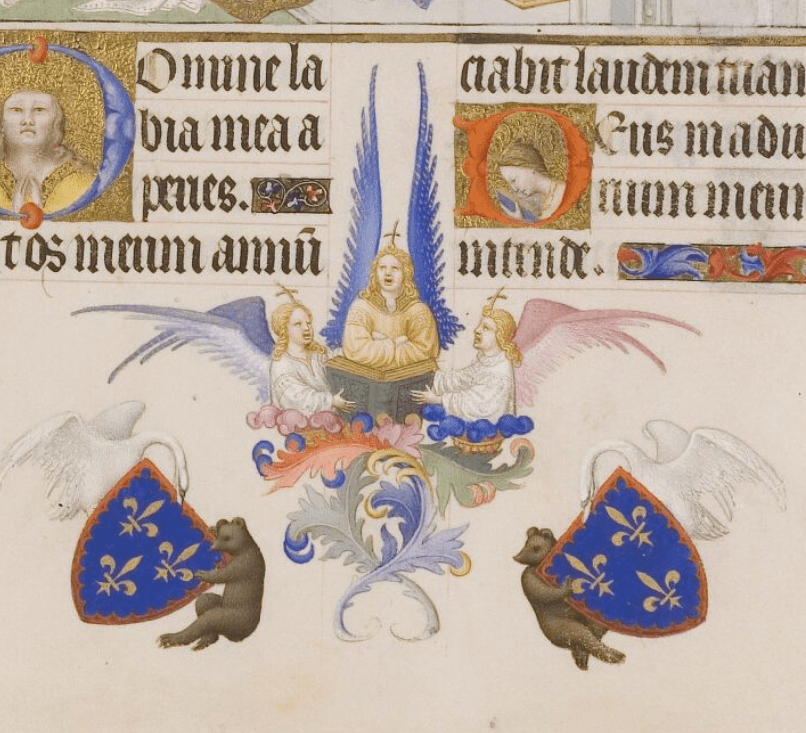 DOmine la
bia mea a
peries.
t os meum annū
ciabit laudem tuam
DEus in adiu
rium meum
intende.